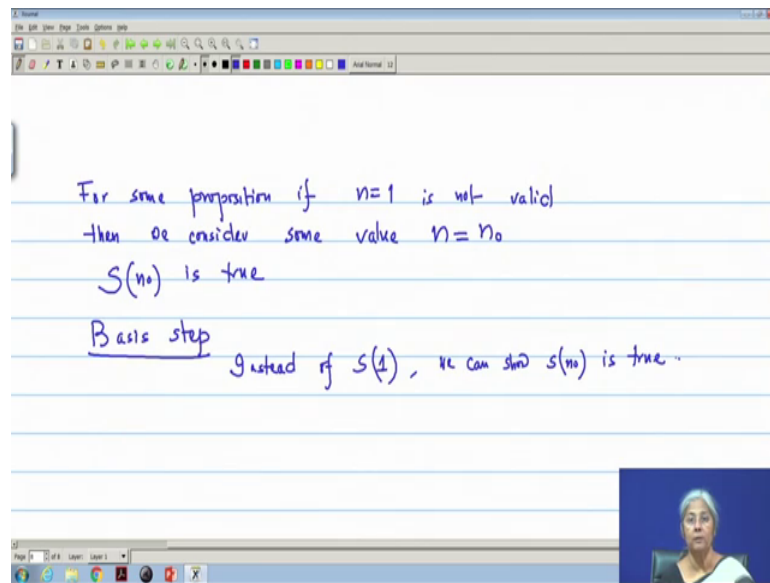 Journal
File Edit View Page Tools Options Help
Arial Normal 12
For some proposition if n=1 is not valid
then we consider some value n = n₀
S(n₀) is true
Basis step
Instead of S(1), we can show S(n₀) is true.
Page of 8 Layer: Layer 1